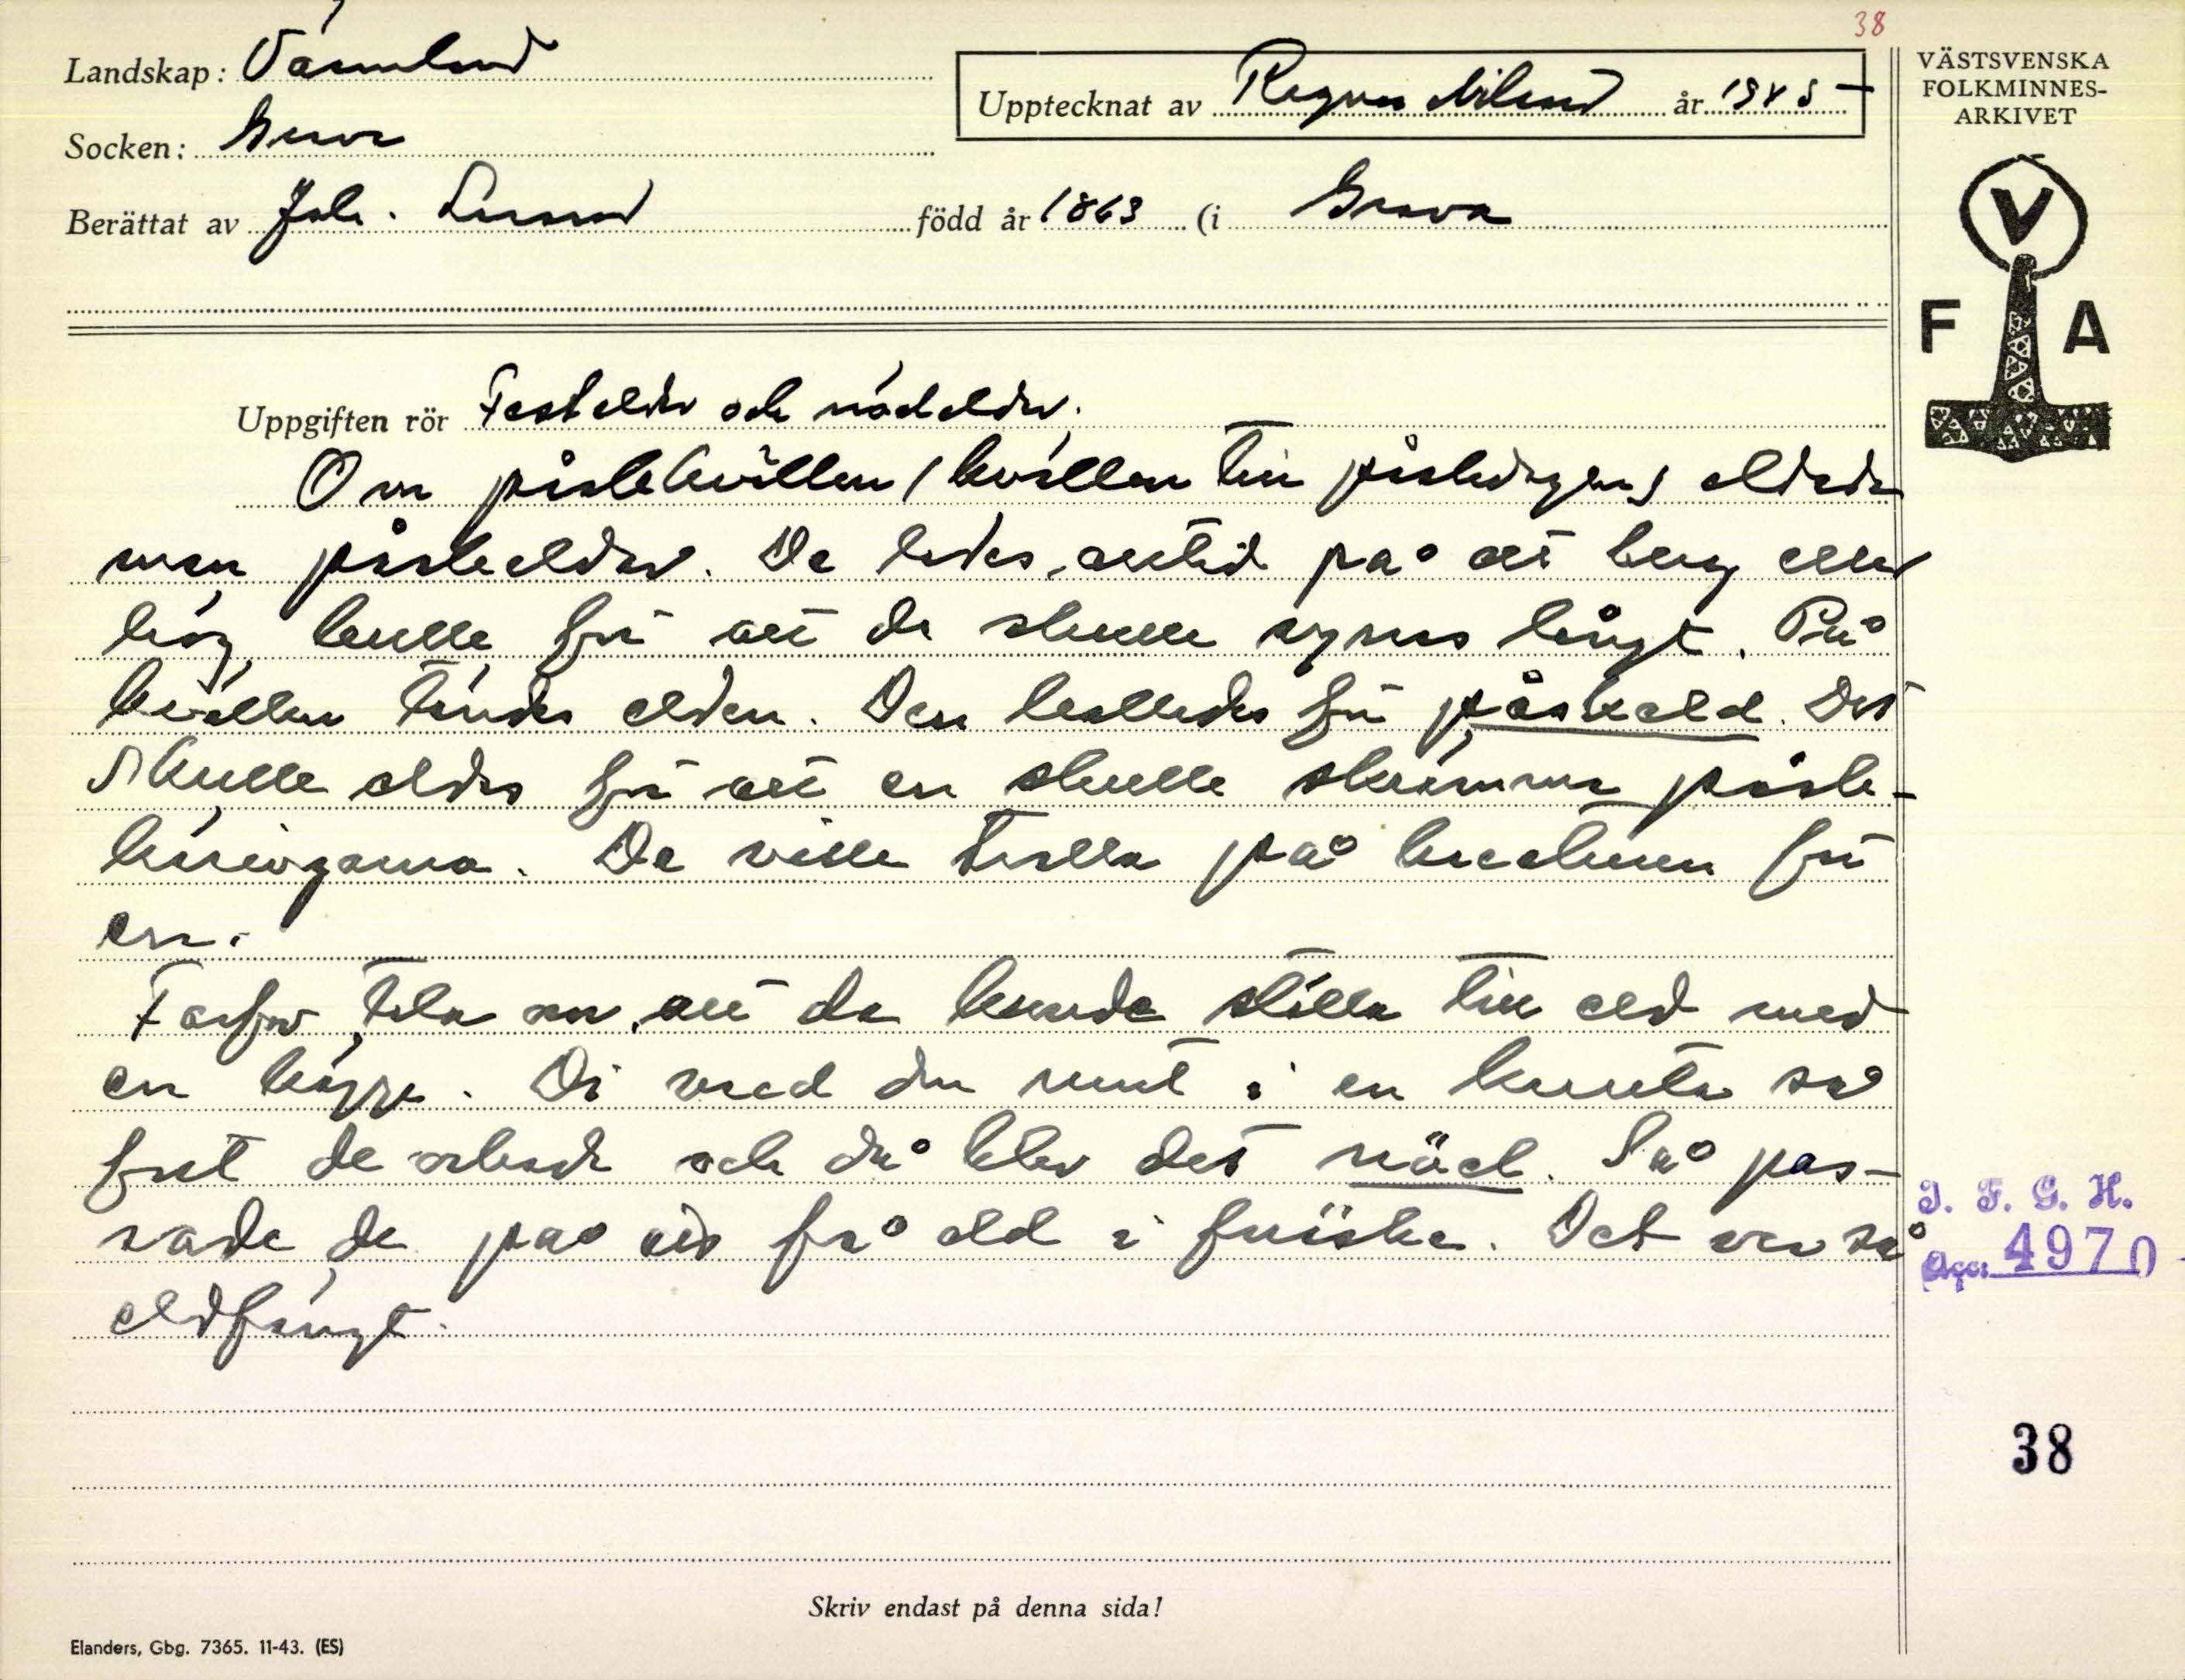 38
Landskap: Värmland
Upptecknat av Ragnar Nilsson år 1945
VÄSTSVENSKA
FOLKMINNES-
ARKIVET
Socken: Grava
Berättat av Joh. Larsson född år 1863 (i Grava
V
F A
Uppgiften rör Festeldar och nödeldar.
Om påskekvällen (kvällen till påskdagen) eldade
man påskeldar. De lades alltid på ett berg eller
hög kulle för att de skulle synas långt. På
kvällen tändes elden. Den kallades för påskeld. Det
skulle eldas för att en skulle skrämma påsk-
käringarna. De ville trolla på kreaturen för
en.
Farfar tala om att de kunde ställa till eld med
en käpp. Di vred den runt i en så
fort de orkade och då blev det nöd. Så pas-
sade de på att få eld i fnöske. Det var så
eldfängt.
I. F. G. H.
Acc. 4970
38
Skriv endast på denna sida!
Elanders, Gbg. 7365. 11-43. (ES)